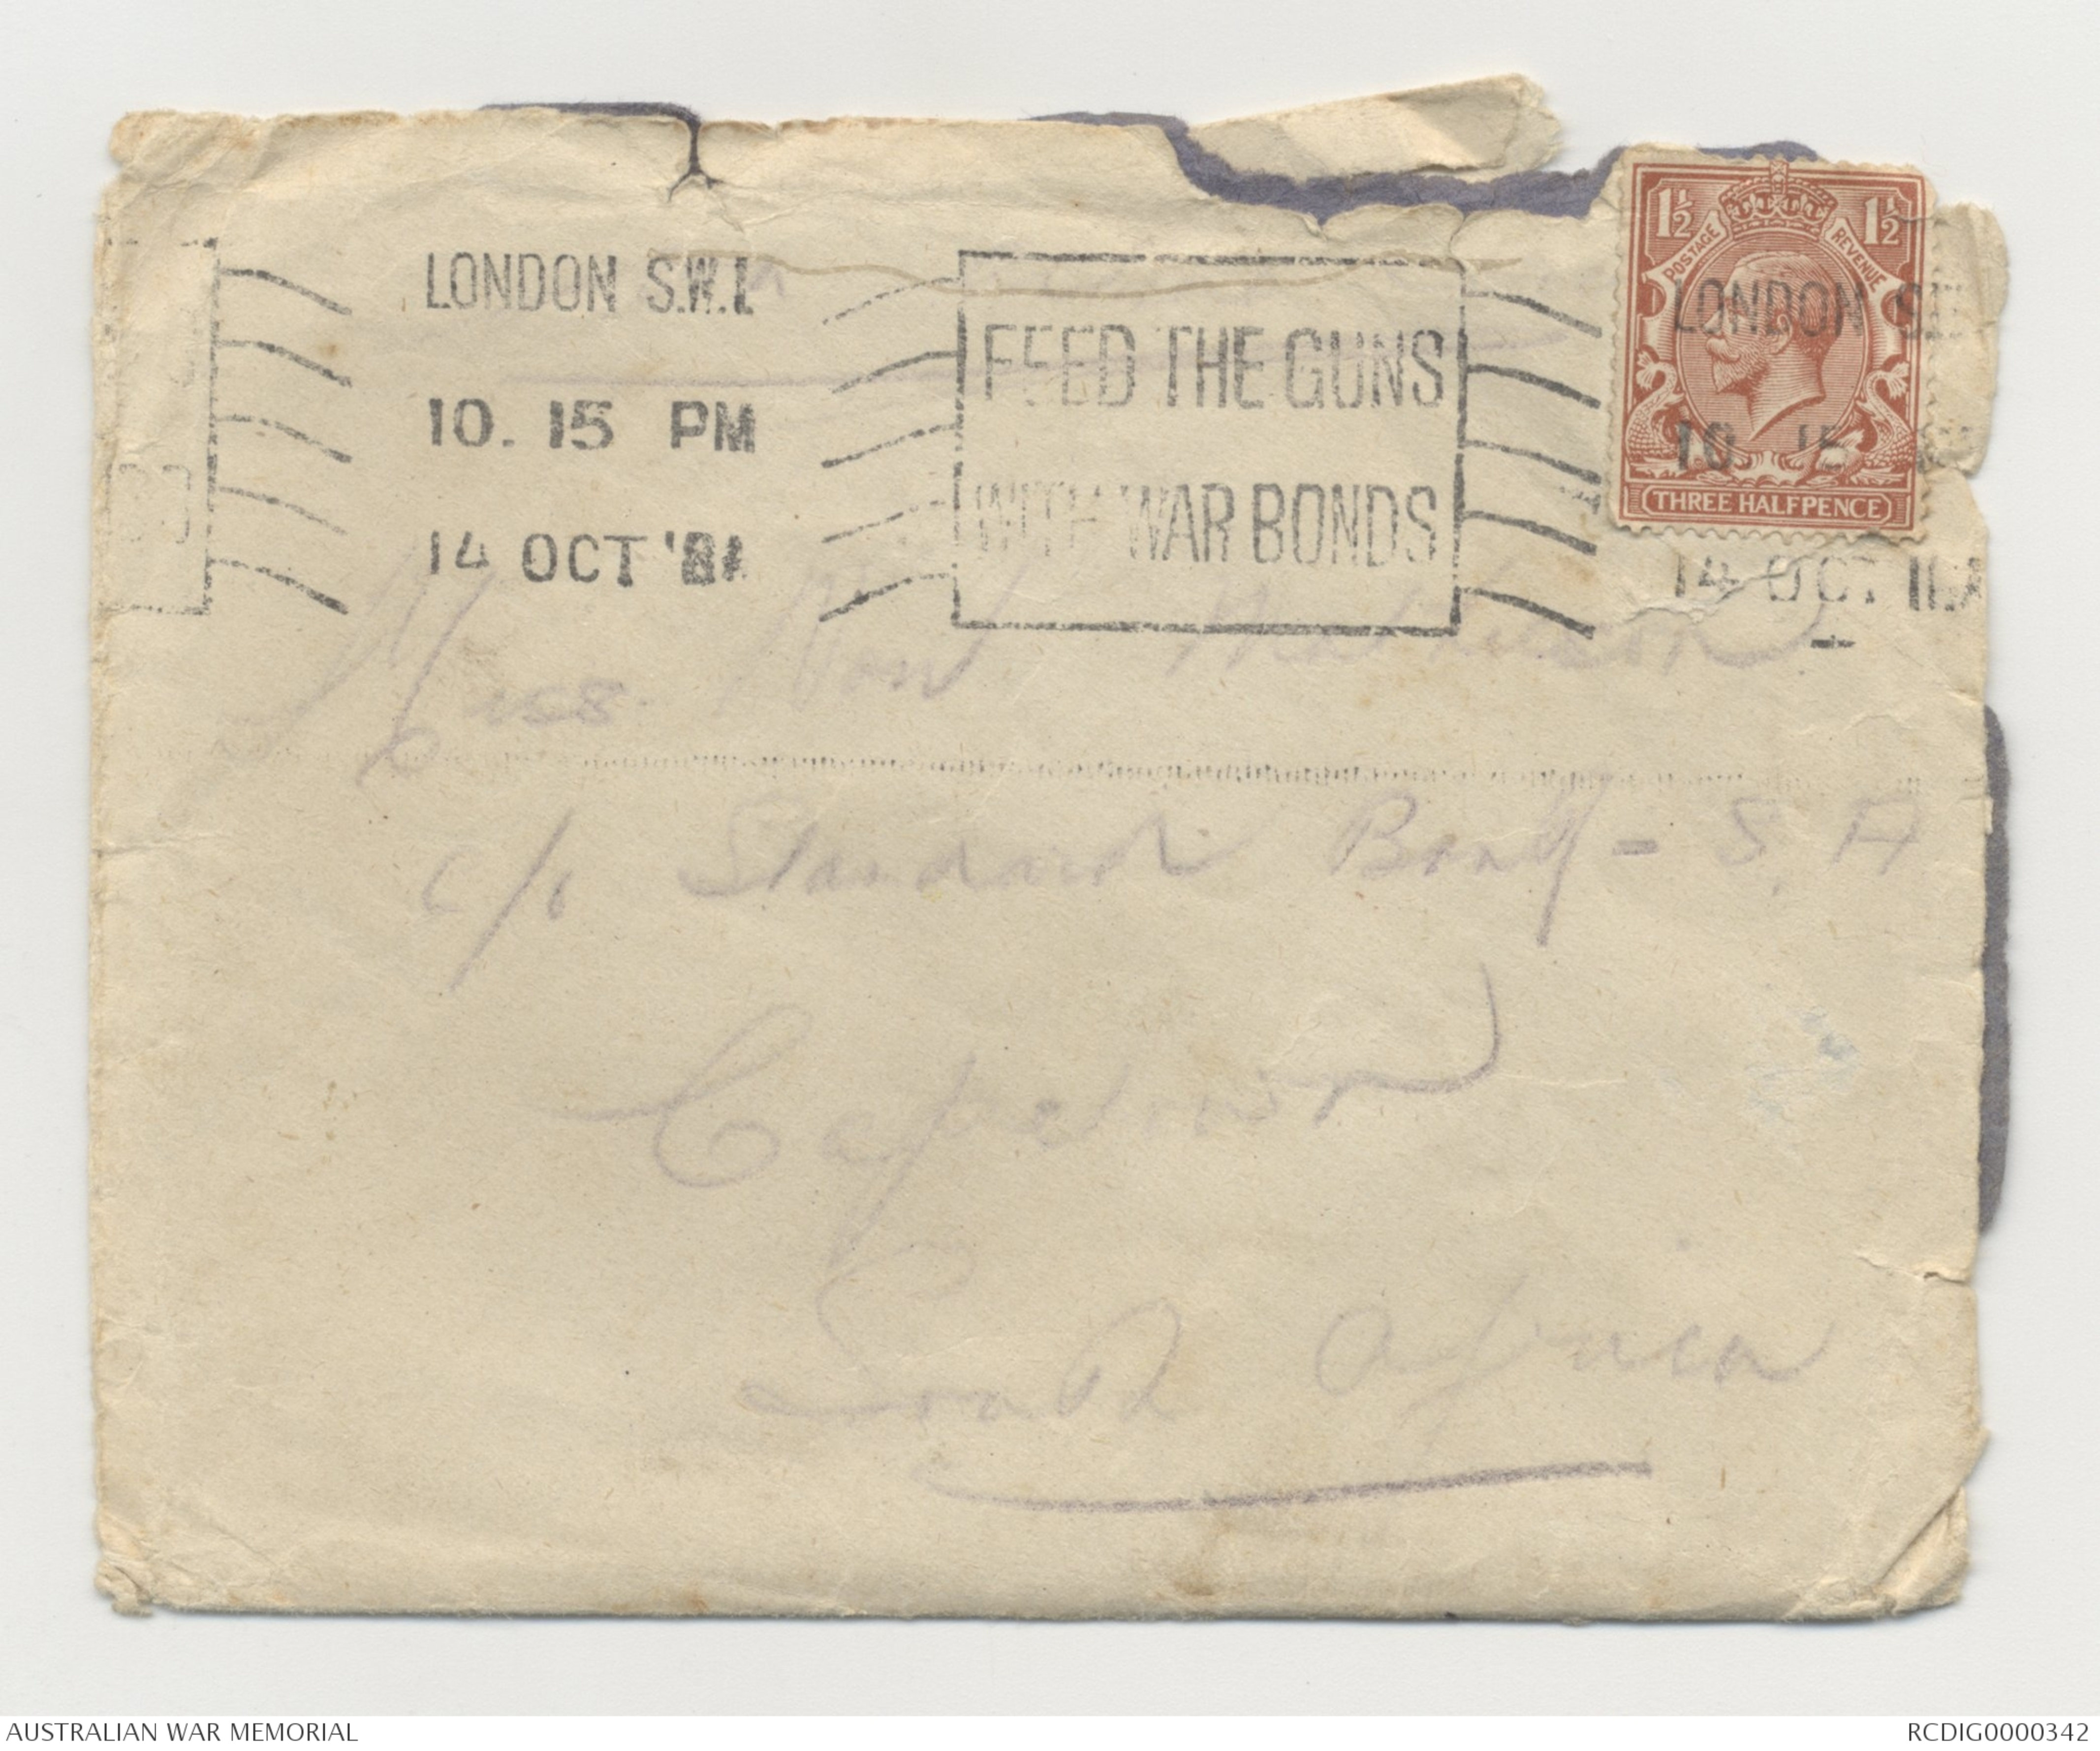 LONDON S.W.1
10. 15 PM
14 OCT '18
FEED THE GUNS
WITH WAR BONDS
1½ 1½
POSTAGE REVENUE
THREE HALFPENCE
LONDON S
10 15
14 OCT
Miss
c/o Standard Bank - S. A
Capetown
South Africa
AUSTRALIAN WAR MEMORIAL
RCDIG0000342